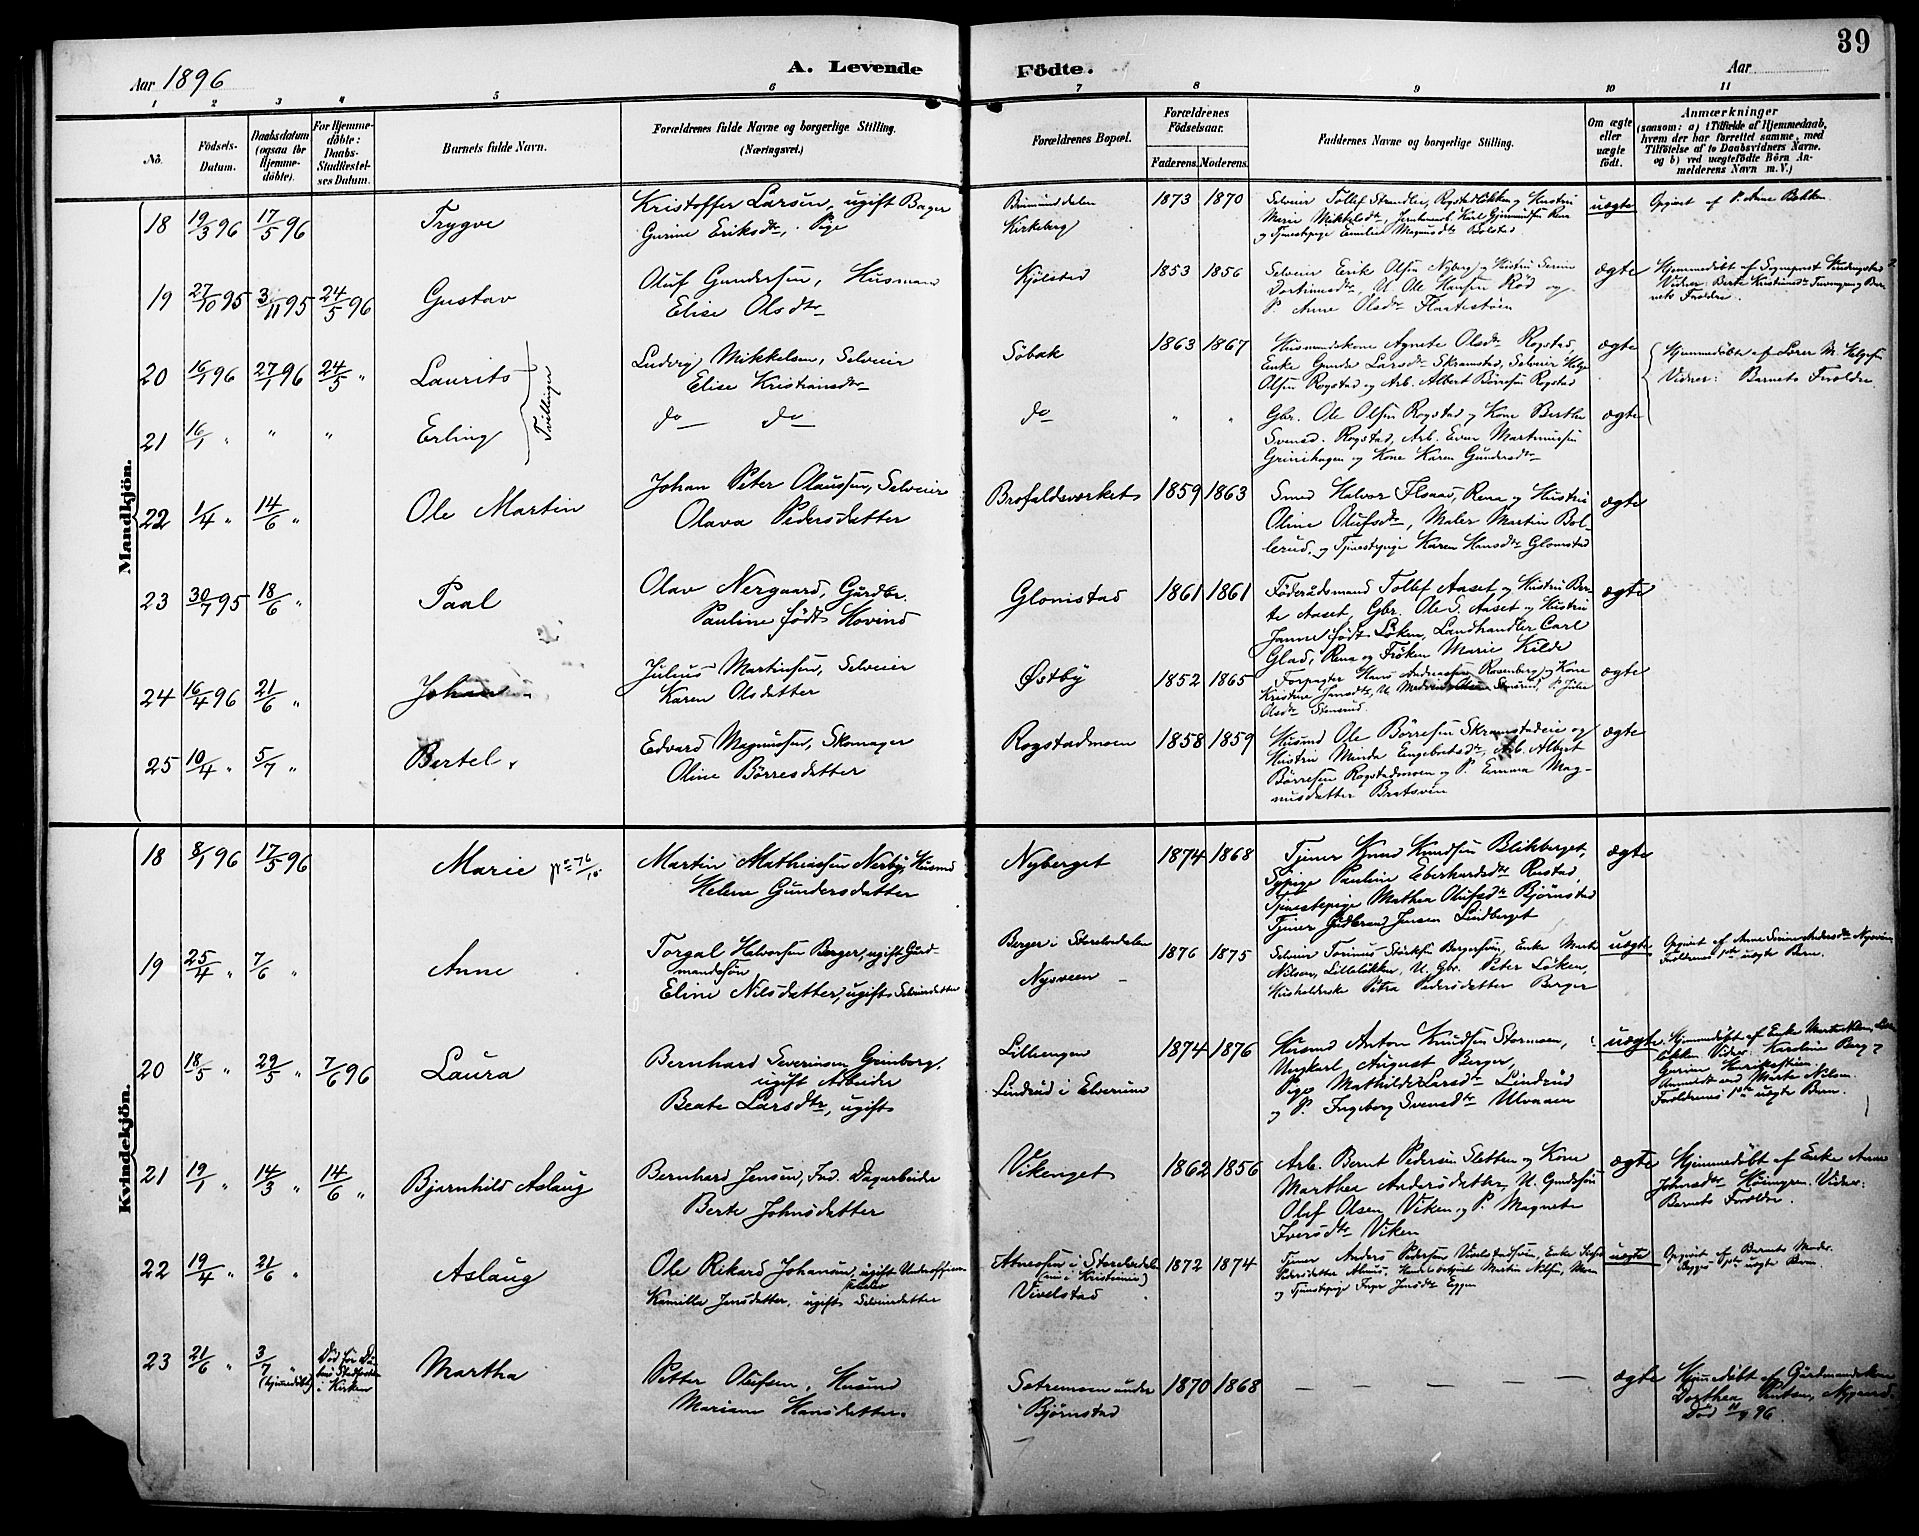 39
Aar 1896
A. Levende Födte.
Aar
1 2 3 4 5 6 7 8 9 10 11
No.
Födsels-Datum.
Daabsdatum (ogsaa for Hjemme-döbte).
For Hjemme-döbte: Daabs-Stadfæstel-ses Datum.
Barnets fulde Navn.
Forældrenes fulde Navne og borgerlige Stilling. (Næringsvei.)
Forældrenes Bopæl.
Forældrenes Födselsaar.
Faderens. Moderens.
Faddernes Navne og borgerlige Stilling.
Om ægte eller uægte födt.
Anmærkninger
(saasom: a) i Tilfælde af Hjemmedaab,
hvem der har forrettet samme, med
Tilföielse af to Daabsvidners Navne.
og b) ved uægtefödte Börn An-
melderens Navn m. V.)
Mandkjön.
18 19/3 96 17/5 96 Trygve
Kristoffer Larsen, ugift Bager
Gurine Eriksdtr, Pige
Kirkeberg
1873 1870
Marie Mikkelsdtr,
og Tjenestepige Emilie Magnusdtr Bolstad
uægte
Opgivet af P. Anne Bakken.
19 27/10 95 3/11 95 24/5 96 Gustav
Oluf Gundersen, Husmand
Elise Olsdtr
Kjölstad
1853 1856
Selveier Erik Olsen Nyberg og Hustru
U. Ole Hansen Röd og
P. Anne Olsdtr
ægte
Hjemmedöbt af
Vidner: Berte Kristiansdtr
20 16/1 96 27/1 96 24/5 " Laurits
Tvillinger
Ludvig Mikkelsen, Selveier
Elise Kristiansdtr
Söbak
1863 1867
Husmandskone Agnete Olsdtr Rogstad,
Enke Gunda Larsdtr Skramstad, Selveier Helge
Olsen Rogstad og Arb. Albert Börresen Rogstad
ægte
Hjemmedöbt af Lærer M. Helgesen
Vidner: Barnets Forældre
21 16/1 " " " Erling
do do
do
" "
Gbr. Ole Olsen Rogstad og Kone Berthe
Svensd. Rogstad, Arb. Even Martinussen
Grinihagen og Kone Karen Gundersdtr
ægte
22 1/4 " 14/6 " Ole Martin
Johan Peter Olaussen, Selveier
Olava Pedersdatter
Brofaldsværket
1859 1863
Smed Halvor Flsaas, Rena og Hustru
Oline Olufsdtr, Maler Martin Bol-
lerud, og Tjenestepige Karen Hansdtr Glomstad
ægte
23 30/7 95 18/6 " Paal
Olav Nergaard, Gårdbr.
Pauline født Hovind
Glomstad
1861 1861
Föderådsmand Tollef Aaset og Hustru Ber-
te Aaset, Gbr. Ole S. Aaset og Hustru
Janne født Löken, Landhandler Carl
Glad, Rena og Fröken Marie Kilde
ægte
24 16/4 96 21/6 " Johan
Julius Martinsen, Selveier
Karen Olsdatter
Østby
1852 1865
Forpagter Hans Andreassen Rosenberg og Kone
Kristine Jensdtr, U. Olsen P. Julie
Olsdtr Stensrud
ægte
25 10/4 " 5/7 " Bertel
Edvard Magnussen, Skomager
Oline Börresdatter
Rogstadmoen
1858 1859
Husmd Ole Börresen Skramstadeie og
Hustru Minda Engebretsdtr, Arb. Albert
Börresen Rogstadmoen og P. Emma Mag-
nusdatter Bratsven
ægte
Kvindekjön.
18 8/1 96 17/5 96 Marie
Martin Mathiassen Nerby, Husmd
Helene Gundersdatter
Nyberget
1874 1868
Tjener Knud Knudsen Blikberget,
Sypige Pauline Eberhardsdtr Rustad,
Tjenestepige Mathea Olufsdtr Björnstad
Tjener Gudbrand Jensen Lindberget
ægte
19 25/4 " 7/6 " Anne
Torgal Halvorsen Berger, ugift Gård-
mandssön
Eline Nilsdatter, ugift Selveierdatter
Berger i Storelvdalen
Nysveen
1876 1875
Enke Marte
Nilsen, Lillelökken, U. Gbr. Peter Löken,
Husholderske Petra Pedersdatter Berger
uægte
Opgivet af Anne
Forældrenes 1ste uægte Barn.
20 18/5 " 29/5 " 7/6 96 Laura
Bernhard Severinsen Grinborg,
ugift Arbeider
Beate Larsdtr, ugift
Lillengen
Lindrud i Elverum
1874 1876
Husmd Anton Knudsen Stormoen,
Ungkarl August Berger,
Pige Mathilde Larsdtr Lindrud
og P. Ingeborg Svensdtr Ulvaaen
uægte
Hjemmedöbt af Enke Marte Nilsen, Lille-
lökken. Vidner: Karoline Berg
Anmeldt ved Marte Nilsen.
Forældrenes 1ste uægte Barn.
21 19/1 " 14/3 " 14/6 " Bjarnhild Aslaug
Bernhard Jensen, Ind. Dagarbeider
Berte Johnsdatter
Vikenget
1862 1856
Arb. Bernt Pedersen Sletten og Kone
Marthea Andersdatter, U. Gmdssön
Olaf Olsen Viken, og P. Magnete
Iversdtr Viken
ægte
Hjemmedöbt af Enke Anne
Johnsdtr Vidner:
Barnets Forældre.
22 19/4 " 21/6 " Aslaug
Ole Rikard Johansen, ugift Underofficer
Kamilla Jensdatter, ugift Selveierdatter
i Storelvdalen
(nu i Kristiania)
Vivelstad
1872 1874
Tjener Anders Pedersen Enke
Pedersdatter Martin Nilsen, Moen
og Tjenestepige Inger Jensdtr Eggen
uægte
Opgivet af Barnets Moder.
Begges 1ste uægte Barn.
23 21/6 " 3/7 " (hjemmedöbt) Död før Daa-
bens Stadfæstelse
i Kirken
Martha
Petter Olufsen, Husmd
Mariane Hansdatter.
Sætremoen under
Björnstad
1870 1868
— — — — —
ægte
Hjemmedöbt af Gårdmandskone
Dorthea Knutsen, Nygaard.
Död 11/9 96.